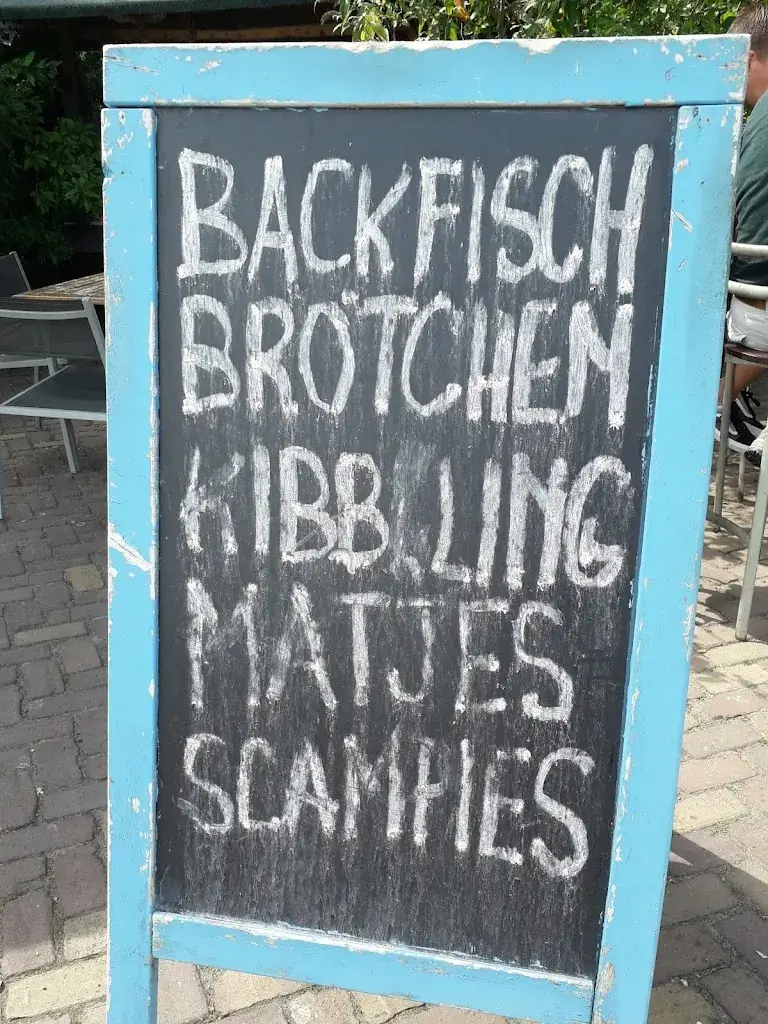 BACKFISCH
BRÖTCHEN
KIBBLING
MATJES
SCAMPIES